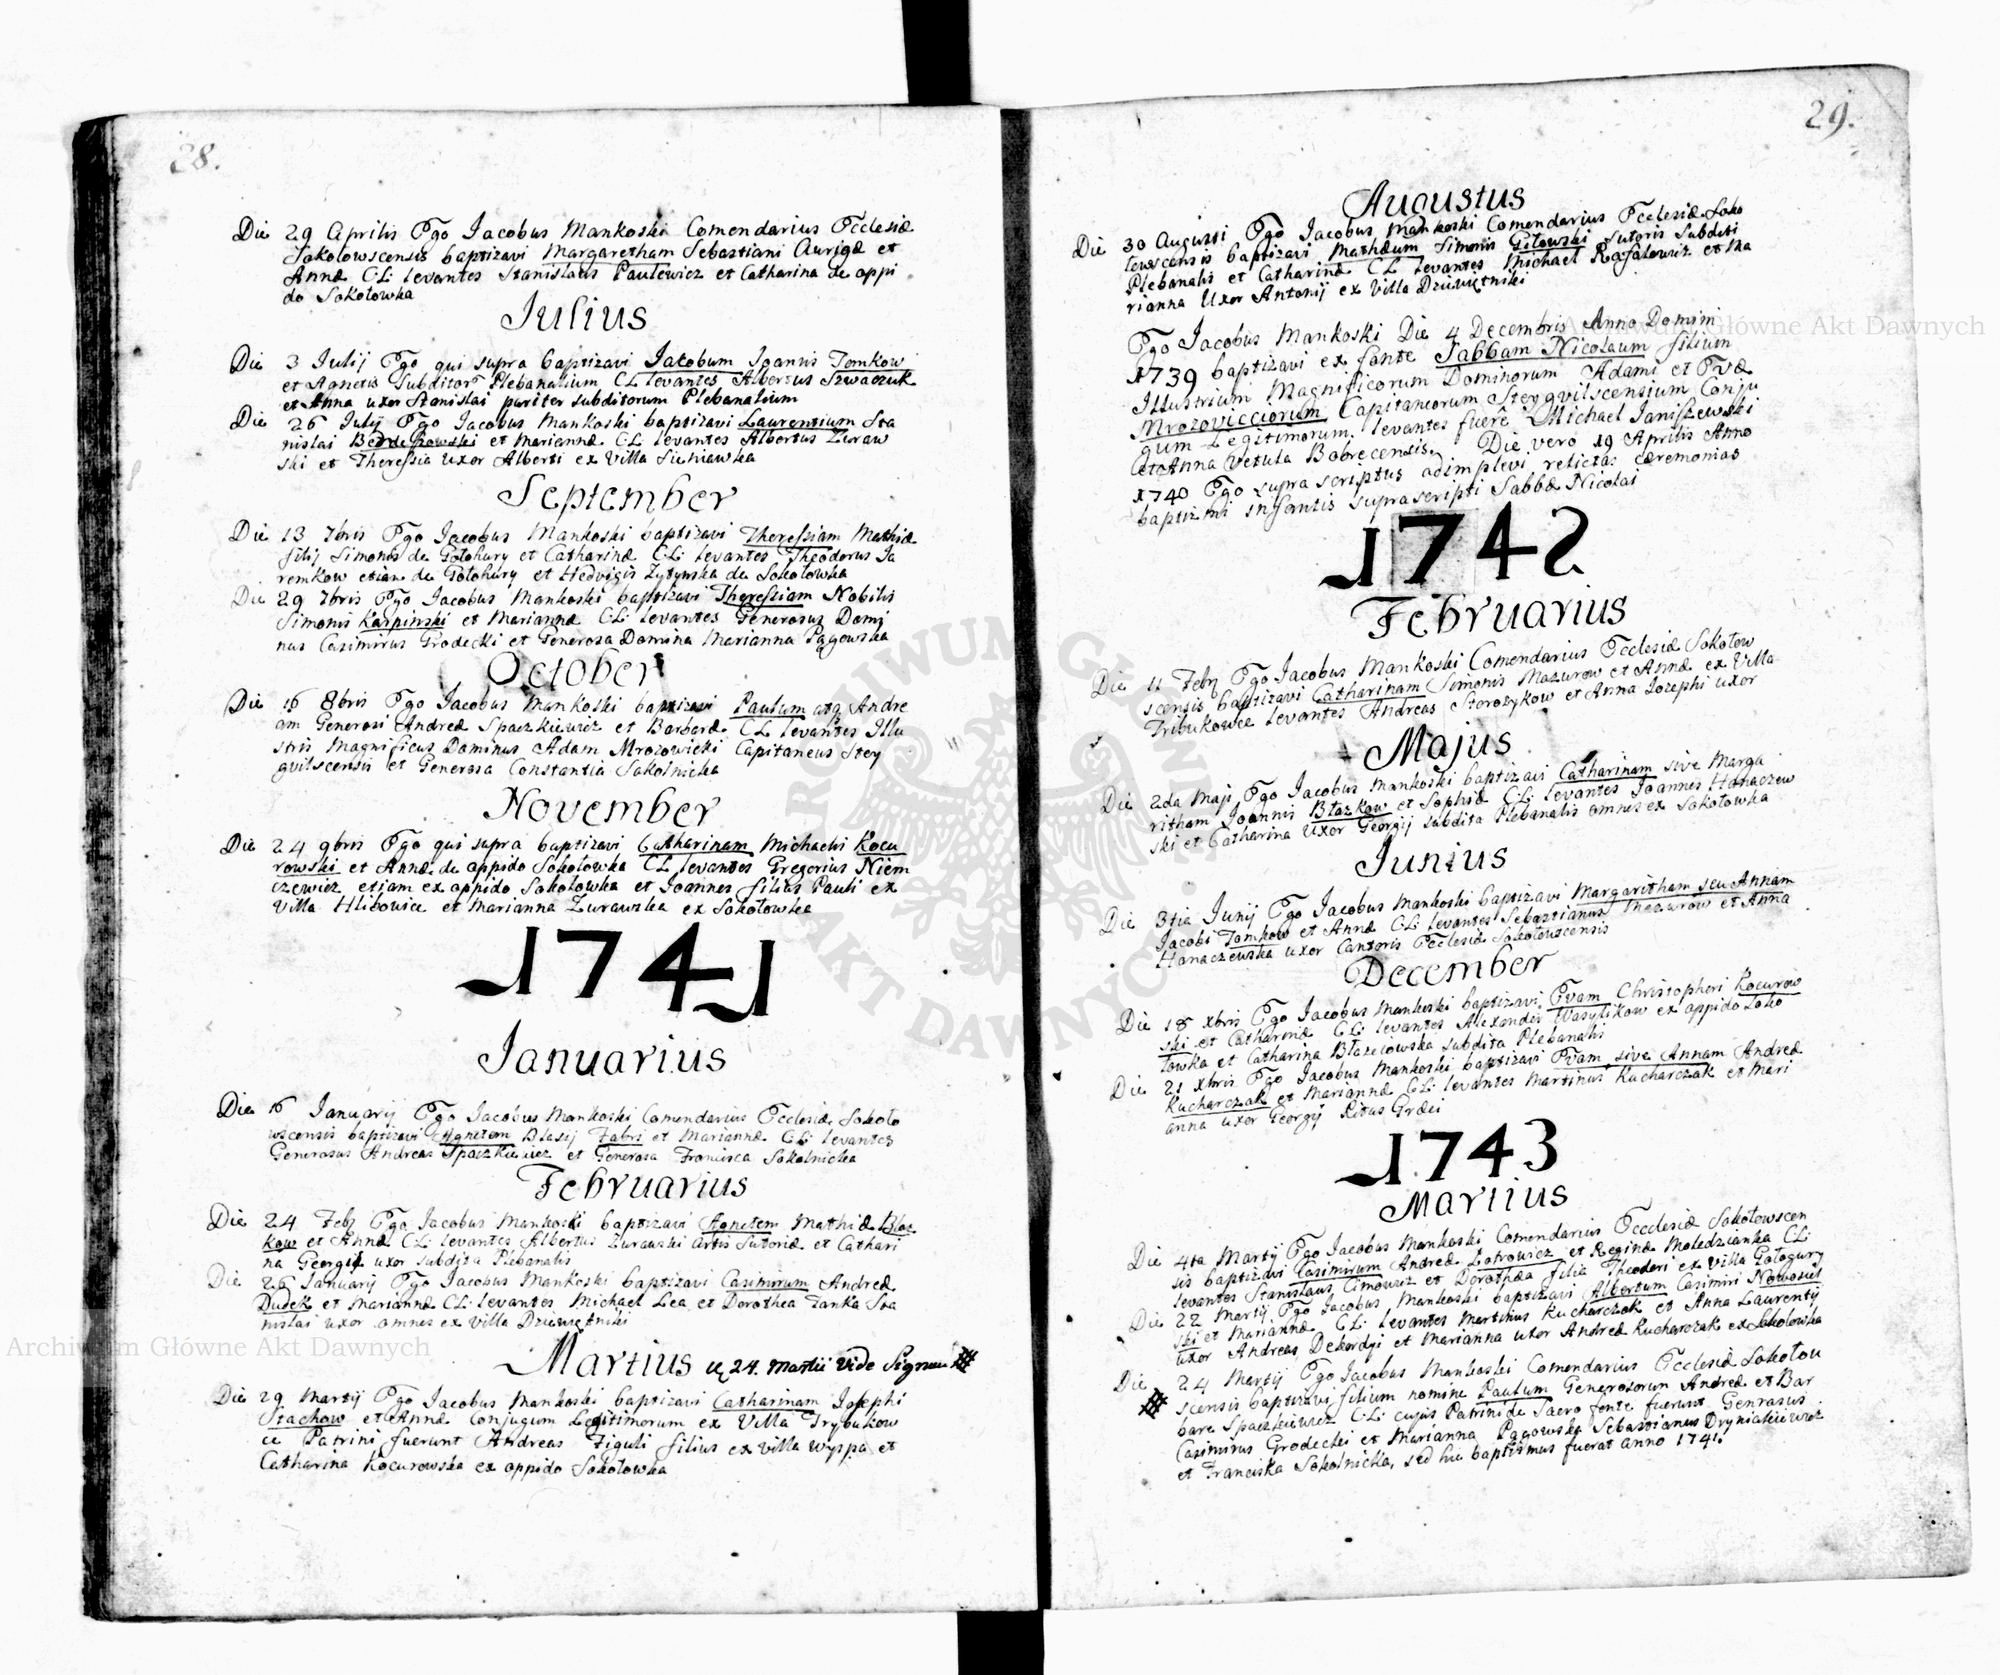 28.
Die 29 Aprilis Ego Jacobus Mankoski Comendarius Ecclesiæ
Sokolowscensis baptizavi Margaretham Sebastiani Aurigæ et
Annæ CL: levantes Stanislaus Paulewicz et Catharina de oppi
do Sokołowka
Julius
Die 3 Julij Ego qui supra baptizavi Jacobum Joannis Tomkow
et Agnetis Subditor Plebanalium CL levantes Albertus Szwaczuk
et Anna uxor Stanislai pariter subditorum Plebanalium
Die 26 Julij Ego Jacobus Mankoski baptizavi Laurentium Sta
nislai et Mariannæ CL levantes Albertus Zuraw
ski et Theressia uxor Alberti ex Villa Sieniawka
September
Die 13 7bris Ego Jacobus Mankoski baptizavi Theressiam Mathiæ
filij Simonis de Gołohury et Catharinæ CL: levantes Theodorus Ja
remkow etiam de Gołohury et Hedvigis Zytynska de Sokołowka
Die 29 7bris Ego Jacobus Mankoski baptizavi Theressiam Nobilis
Simonis Karpinski et Mariannæ CL: levantes Generosus Domi
nus Casimirus Grodecki et Generosa Domina Marianna Pągowska
October
Die 16 8bris Ego Jacobus Mankoski baptizavi Paulum atq Andre
am Generosi Andreæ Spaczkiewicz et Barbaræ CL levantes Illu
stris Magnificus Dominus Adam Mrozowicki Capitaneus Stey
gvilscensis et Generosa Constantia Sokolnicka
November
Die 24 9bris Ego qui supra baptizavi Catharinam Michaelis Kocu
rowski et Annæ de oppido Sokołowka CL levantes Gregorius Niem
czewicz etiam ex oppido Sokołowka et Joannes filius Pauli ex
Villa Hlibowice et Marianna Zurawska ex Sokołowka
1741
Januarius
Die 16 Januarij Ego Jacobus Mankoski Comendarius Ecclesiæ Sokoło
wscensis baptizavi Agnetem Blasij Fabri et Mariannæ CL: levantes
Generosus Andreas Spaczkiewicz et Generosa Francisca Sokolnicka
Februarius
Die 24 Feb Ego Jacobus Mankoski baptizavi Agnetem Mathiæ Błaz
kow et Annæ CL: levantes Albertus Zurawski Artis Sutoriæ et Cathari
na Georgij uxor subdita Plebanalis
Die 26 Januarij Ego Jacobus Mankoski baptizavi Casimirum Andreæ
Dudek et Mariannæ CL: levantes Michael Lea et Dorothea Janka Sta
nislai uxor omnes ex Villa Dziewiętniki
Martius 24. Martii vide Signum #
Die 29 Martij Ego Jacobus Mankoski baptizavi Catharinam Josephi
Stachow et Annæ Conjugum Legitimorum ex Villa Trybukow
ce Patrini fuerunt Andreas Figuli filius ex villa Wyspa et
Catharina Kocurowska ex oppido Sokołowka
29.
Augustus
Die 30 Augusti Ego Jacobus Mankoski Comendarius Ecclesiæ Soko
łowscensis baptizavi Mathæum Simonis Giłowski Sutoris Subditi
Plebanalis et Catharinæ CL levantes Michael Rafałowicz et Ma
rianna Uxor Antonij ex Villa Dziewiętniki
Ego Jacobus Mankoski Die 4 Decembris Anno Domini
1739 baptizavi ex fonte Sabbam Nicolaum filium
Illustrium Magnificorum Dominorum Adami et Evæ
Mrozovicciorum Capitaneorum Steygvilscensium Conju
gum Legitimorum. levantes fuere Michael Janiszewski
et Anna Vetula Bobrecensis. Die vero 19 Aprilis Anno
1740 Ego supra scriptus adimplevi relictas cæremonias
baptizmi infantis suprascripti Sabbæ Nicolai
1742
Februarius
Die 11 Feb Ego Jacobus Mankoski Comendarius Ecclesiæ Sokołow
scensis baptizavi Catharinam Simonis Mazurow et Annæ ex Villa
Tribukowce levantes Andreas Storozykow et Anna Jozephi uxor
Majus
Die 2da Maji Ego Jacobus Mankoski baptizavi Catharinam sive Marga
ritham Joannis Błazkow et Sophiæ CL: levantes Joannes Hanaczew
ski et Catharina Uxor Georgij subdita Plebanalis omnes ex Sokołowka
Junius
Die 3tia Junij Ego Jacobus Mankoski baptizavi Margaritham seu Annam
Jacobi Tomkow et Annæ CL: levantes Sebastianus Mazurow et Anna
Hanaczewska uxor Cantoris Ecclesiæ Sokołowscensis
December
Die 18 Xbris Ego Jacobus Mankoski baptizavi Evam Christopheri Kocurow
ski et Catharinæ CL: levantes Alexander Wasylikow ex oppido Soko
łowka et Catharina Błazeiowska subdita Plebanalis
Die 21 Xbris Ego Jacobus Mankoski baptizavi Evam sive Annam Andreæ
Kucharczak et Mariannæ CL: levantes Martinus Kucharczak et Mari
anna uxor Georgij Ritus Græci
1743
Martius
Die 4ta Martij Ego Jacobus Mankoski Comendarius Ecclesiæ Sokołowscen
sis baptizavi Casimirum Andreæ Łotrowicz et Reginæ Moledzianka CL:
levantes Stanislaus Cimowicz et Dorothea filia Theodori ex Villa Gołogury
Die 22 Martij Ego Jacobus Mankoski baptizavi Albertum Casimiri Nowosiel
ski et Mariannæ CL: levantes Martinus Kucharczak et Anna Laurentij
uxor Andreas Dekordyi et Marianna uxor Andreæ Kucharczak ex Sokołowka
Die 24 Martij Ego Jacobus Mankoski Comendarius Ecclesiæ Sokołow
# scensis baptizavi filium nomine Paulum Generosorum Andreæ et Bar
baræ Spaczkiewicz CL: cujus Patrini de Sacro fonte fuerunt Generosus
Casimirus Grodecki et Marianna Pągowska Sebastianus Dryniatkiewicz
et Franciska Sokolnicka, sed hic baptismus fuerat anno 1741.
Archiwum Główne Akt Dawnych
Archiwum Główne Akt Dawnych
ARCHIWUM GŁÓWNE AKT DAWNYCH